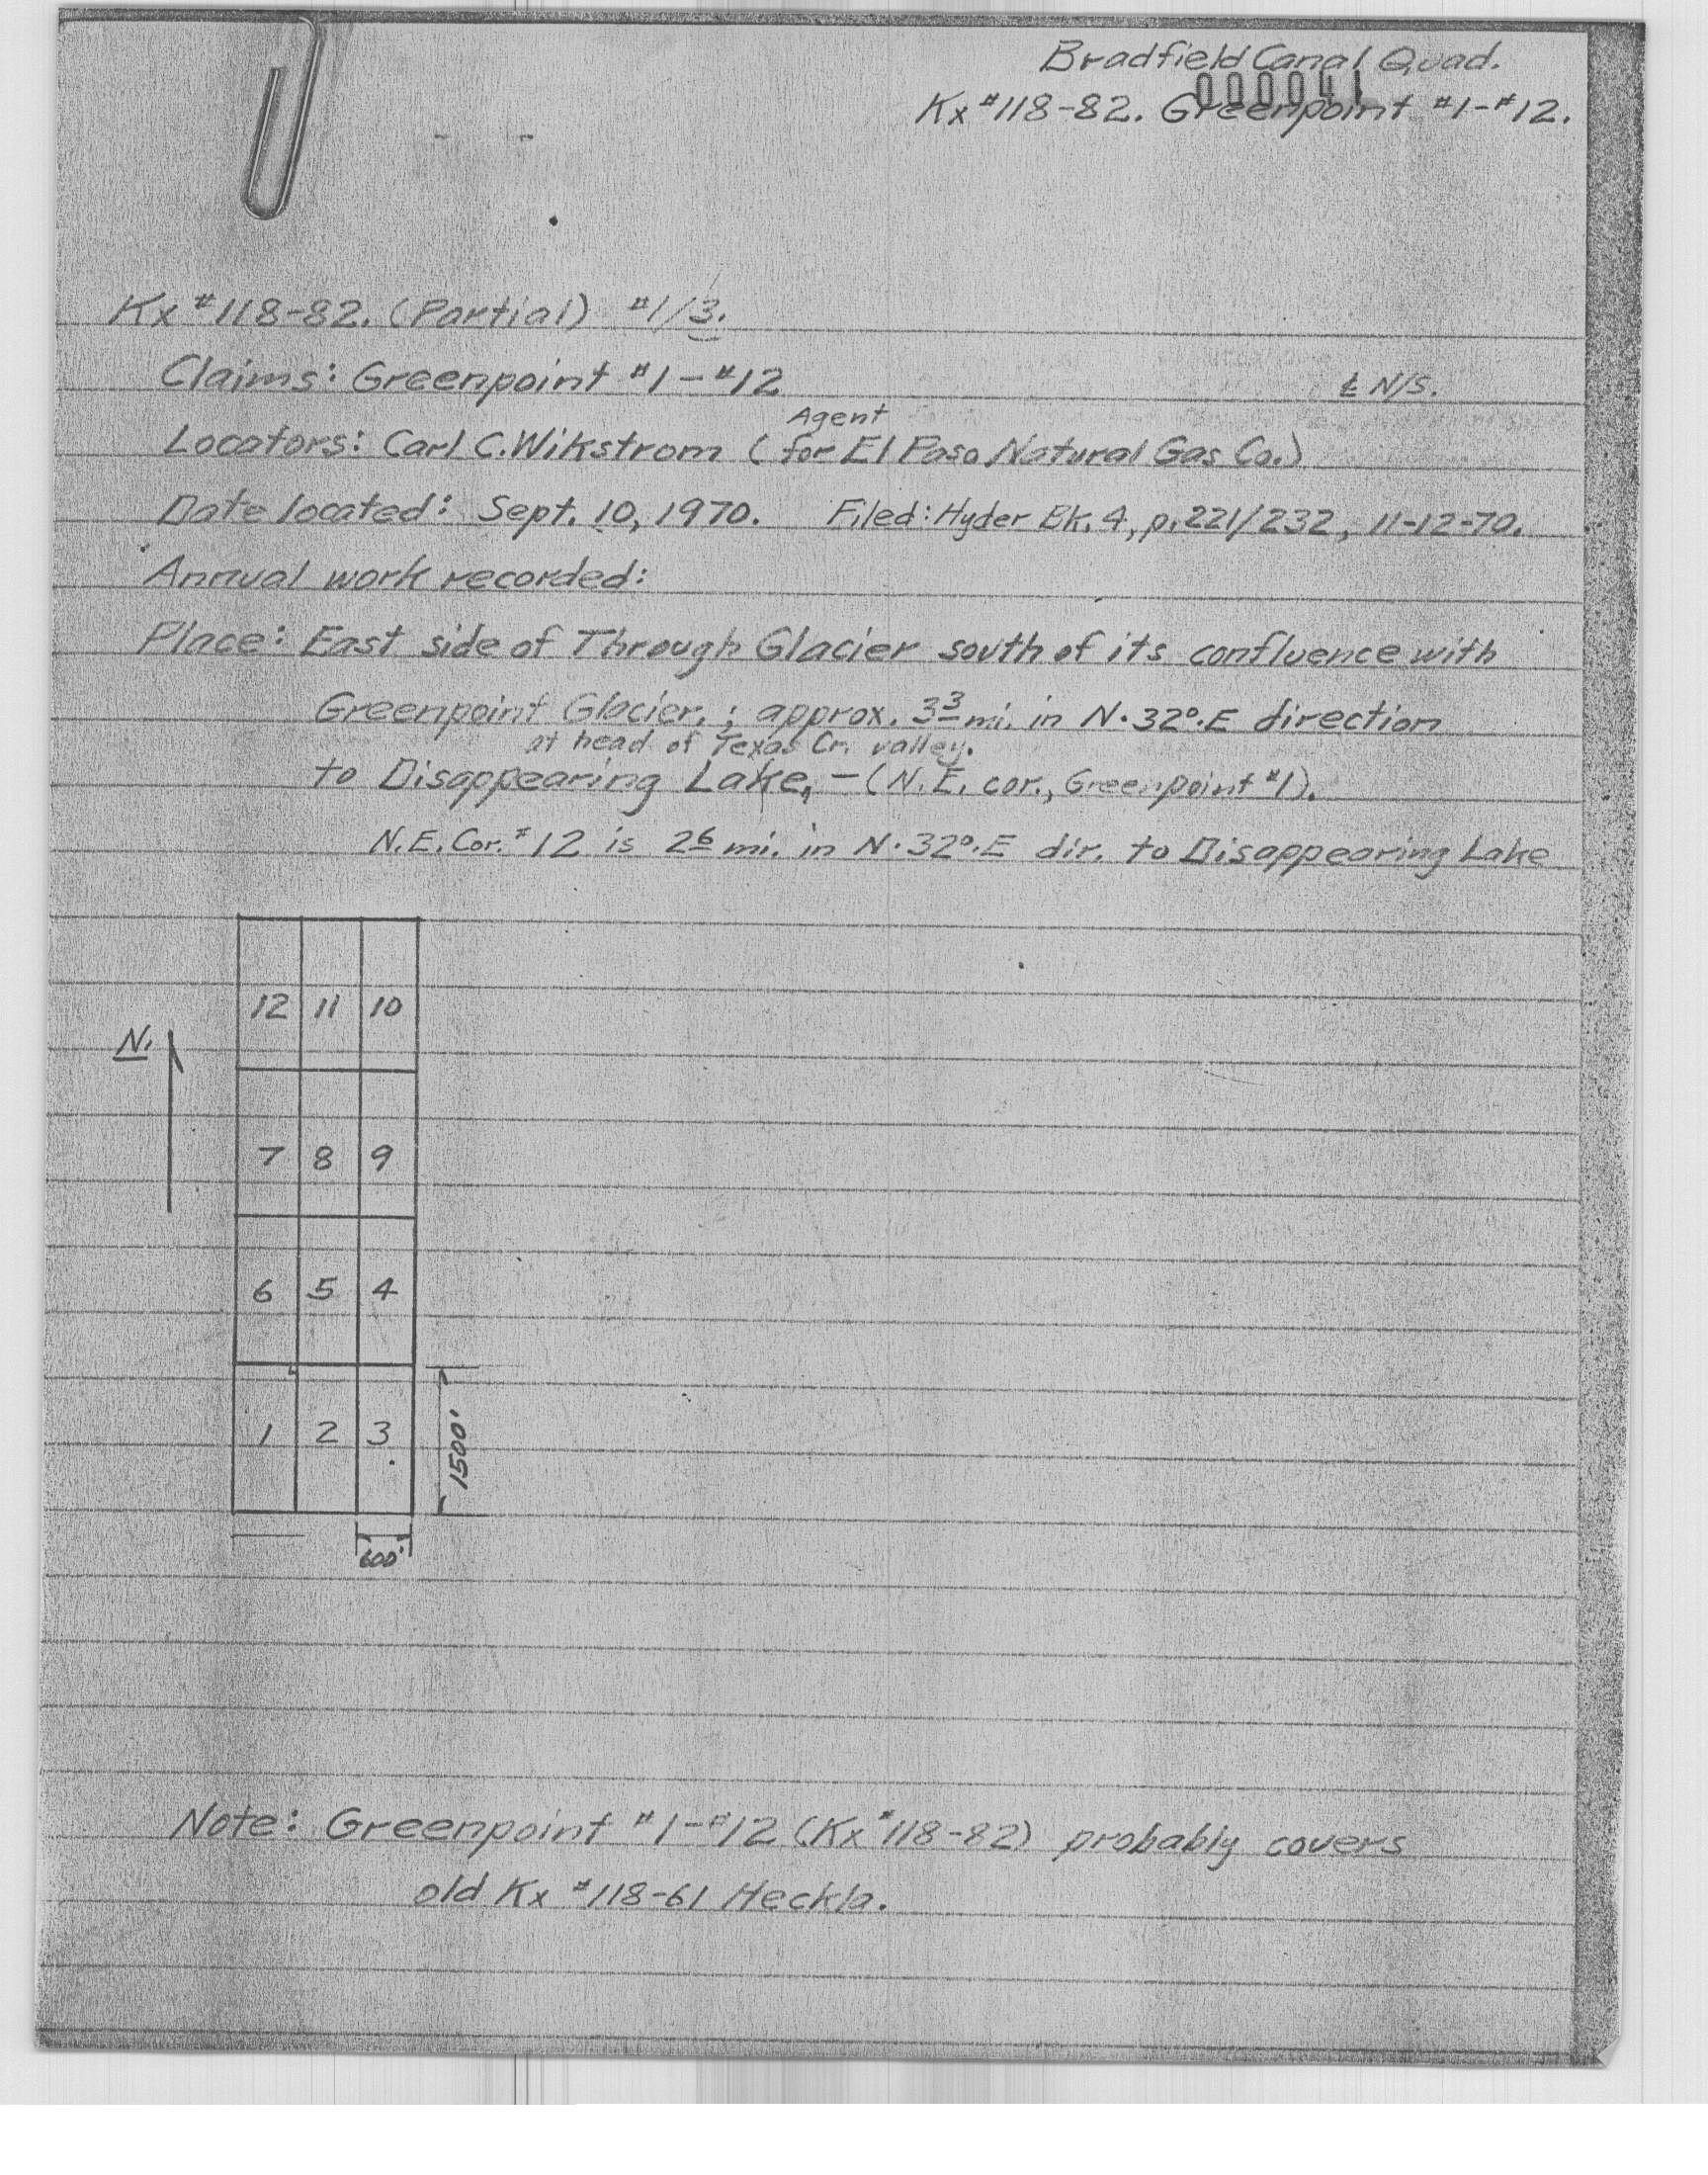 Bradfield Canal Quad.
000041
Kx #118-82. Greenpoint #1-#12.
Kx #118-82. (Partial) #1/3.
Claims: Greenpoint #1-#12 ℄ N/S.
Agent
Locators: Carl C. Wikstrom (for El Paso Natural Gas Co.)
Date located: Sept. 10, 1970. Filed: Hyder Bk. 4, p. 221/232, 11-12-70.
Annual work recorded:
Place: East side of Through Glacier south of its confluence with
Greenpoint Glacier.; approx. 3 3 mi. in N.32°.E direction
at head of Texas Cr. valley.
to Disappearing Lake, - (N.E. cor., Greenpoint #1).
N.E. Cor. #12 is 2 6 mi. in N.32°.E dir. to Disappearing Lake
12 11 10
N.
7 8 9
6 5 4
1 2 3
1500'
600'
Note: Greenpoint #1-#12 (Kx #118-82) probably covers
old Kx #118-61 Heckla.